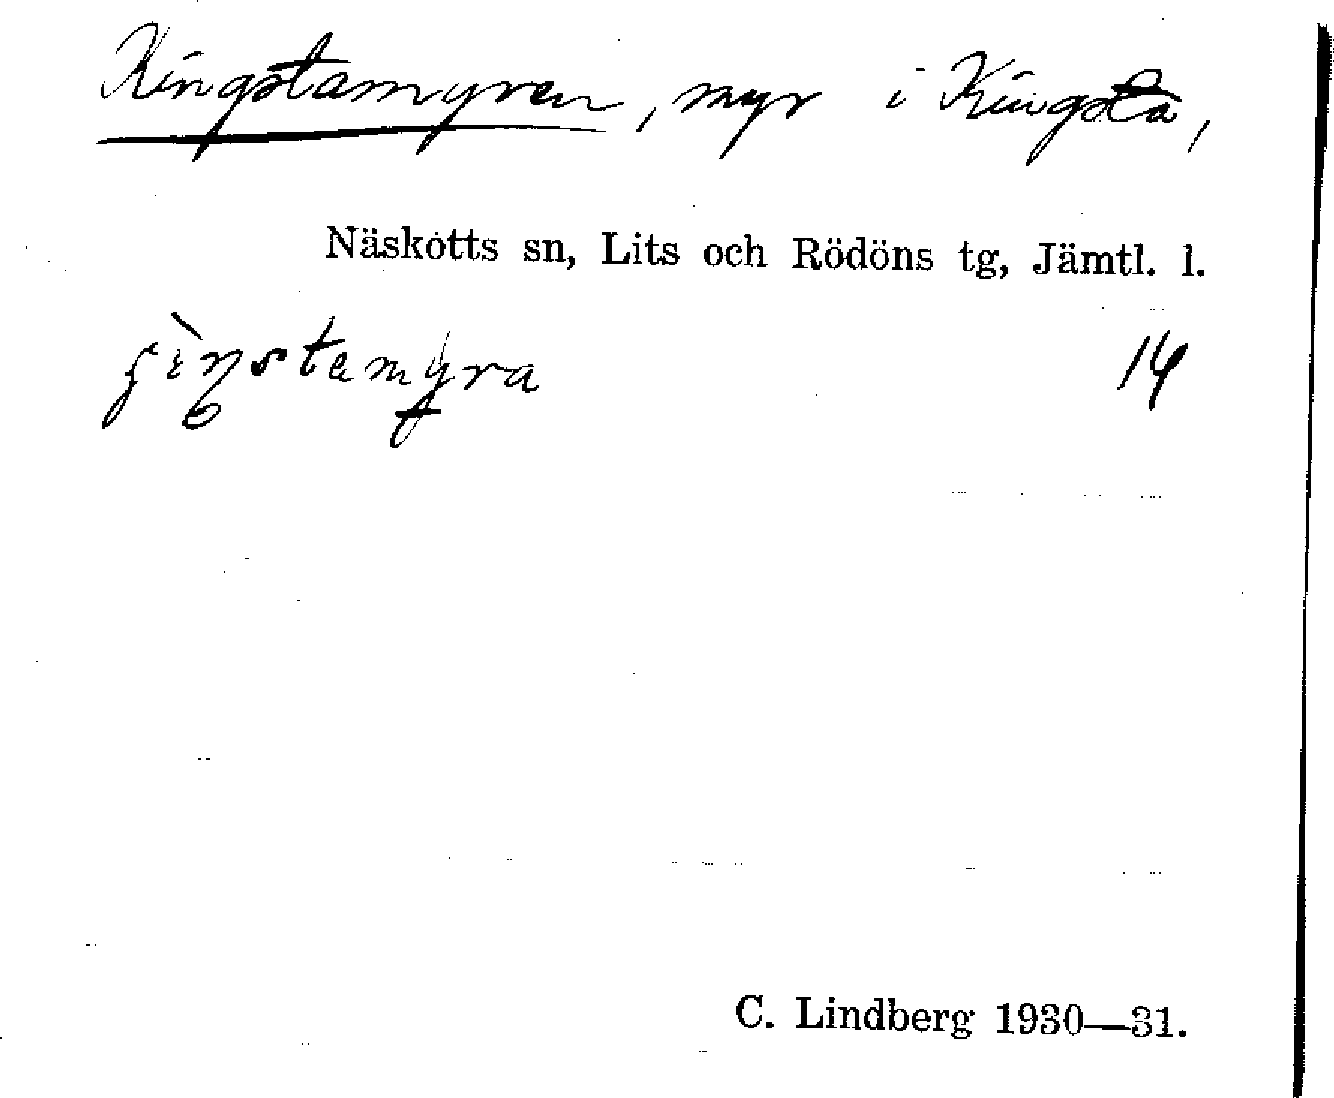 Kingstamyren, myr i Kingsta,
Näskotts sn, Lits och Rödöns tg, Jämtl. l.
14
C. Lindberg 1930—31.